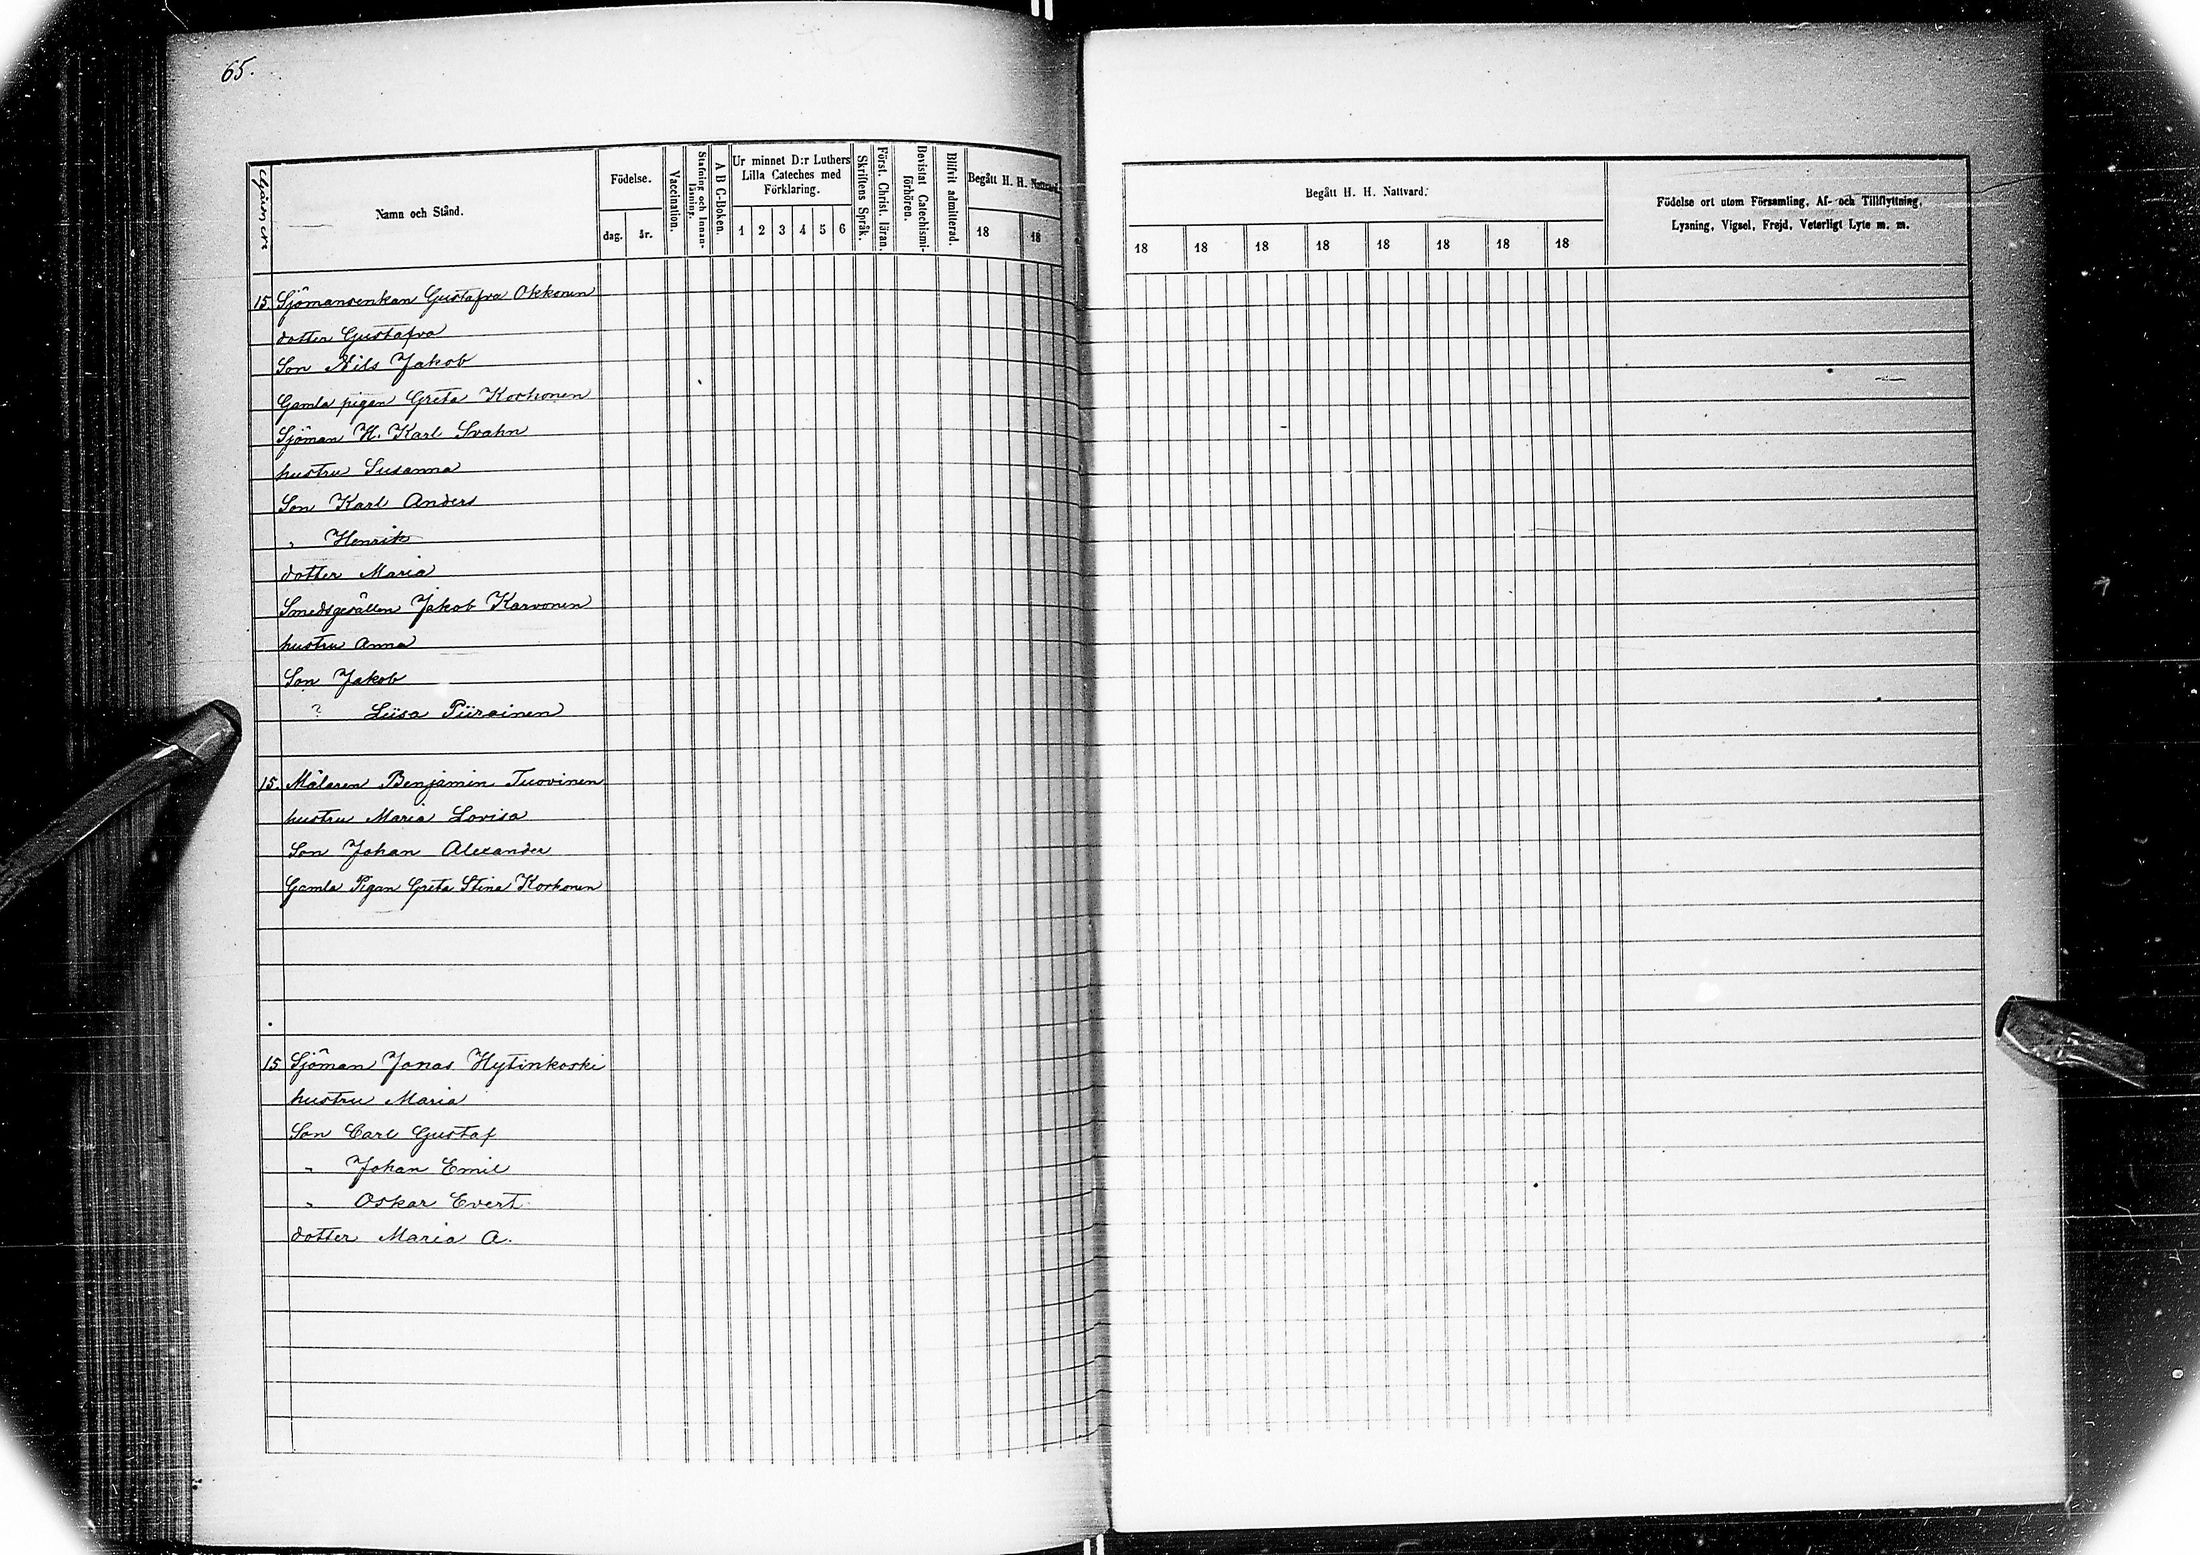 65.
Gård n:o
Namn och Stånd.
Födelse.
dag.
år.
Vaccination.
Stafning och Innan-
läsning.
A B C-Boken.
Ur minnet D:r Luthers
Lilla Cateches med
Förklaring.
1 2 3 4 5 6
Skriftens Språk.
Först. Christ. läran.
Bevistat Catechismi-
förhören.
Blifvit admitterad.
Begått H. H. Nattvard.
18 18
15. Sjömansenkan Gustafva Okkonen
dotter Gustafva
Son Nils Jakob
Gamla pigan Greta Korhonen
Sjöman H. Karl Svahn
hustru Susanna
Son Karl Anders
" Henrik
dotter Maria
Smedsgesällen Jakob Karvonen
hustru Anna
Son Jakob
? Liisa Piirainen
15. Målaren Benjamin Tuovinen
hustru Maria Lovisa
Son Johan Alexander
Gamla Pigan Greta Stina Korhonen
15 Sjöman Jonas Hytinkoski
hustru Maria
Son Carl Gustaf
" Johan Emil
" Oskar Evert
dotter Maria A.
Begått H. H. Nattvard.
18 18 18 18 18 18 18 18
Födelse ort utom Församling, Af- och Tillflyttning,
Lysning, Vigsel, Frejd, Veterligt Lyte m. m.